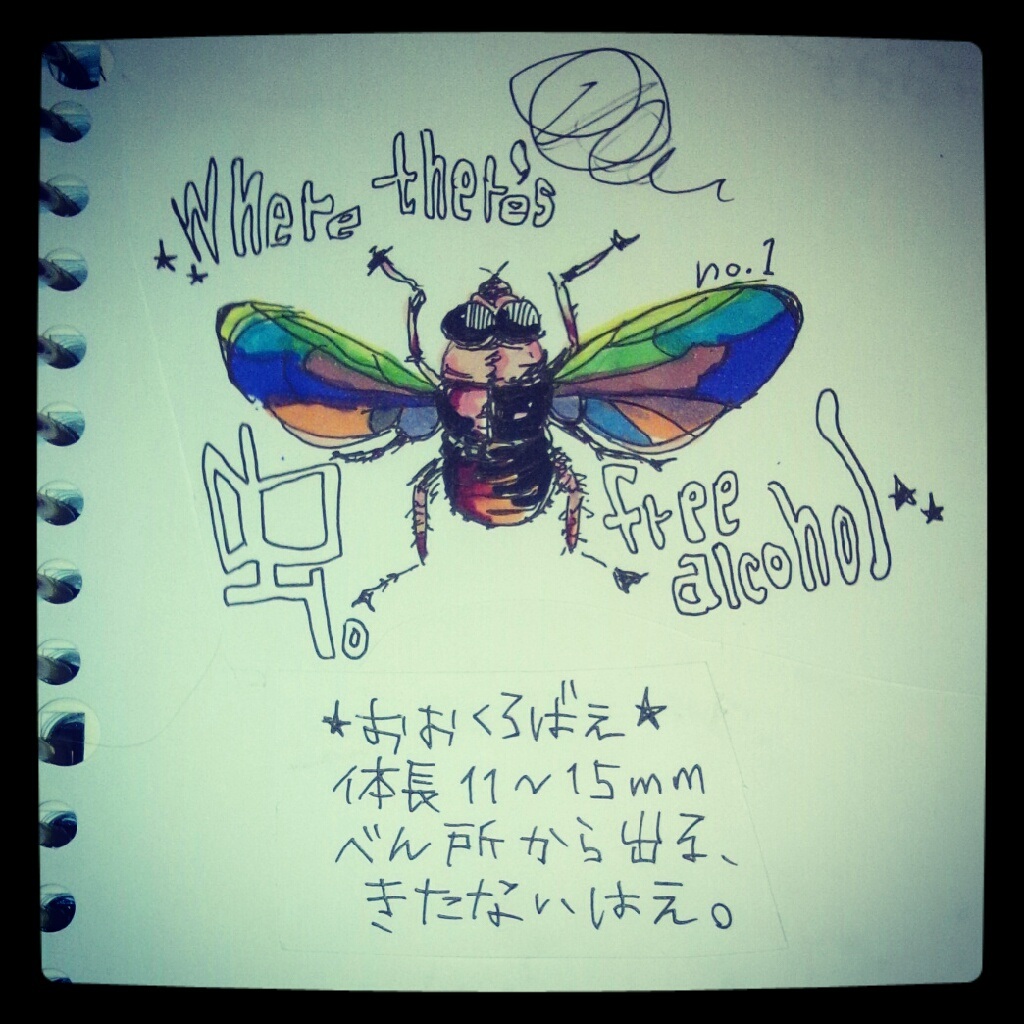 Where there's
no.1
free
alcohol
★おおくろばえ★
体長 11～15mm
べん所から出る、
きたないはえ。